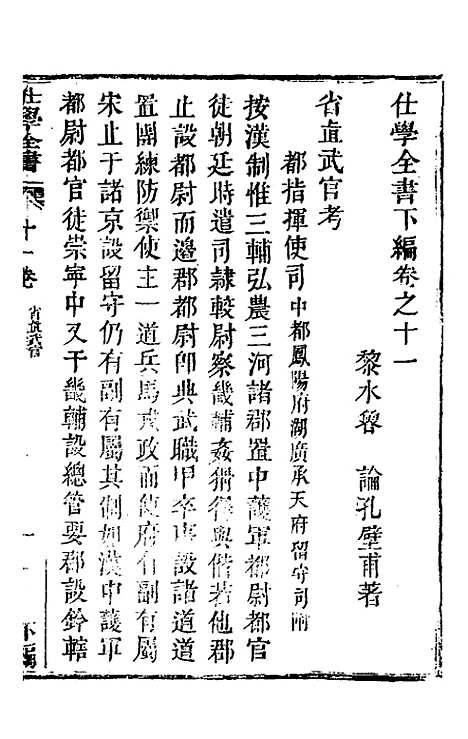 仕學全書下編卷之十一
黎水魯　論孔壁甫著
省直武官考
都指揮使司中都鳳陽府湖廣承天府留守司附
按漢制惟三輔弘農三河諸郡置中護軍都尉都官
徒朝廷時遣司隷較尉察畿輔姦猾得與偕若他郡
止設都尉而邊郡都尉卽典武職甲卒唐設諸道道
置團練防禦使主一道兵馬戎政而使府有副有屬
宋止于諸京設留守仍有副有屬其制如漢中護軍
都尉都官徒崇寧中又于畿輔設總管要郡設鈐轄
仕學全書
十一卷
省直武官
一
下編